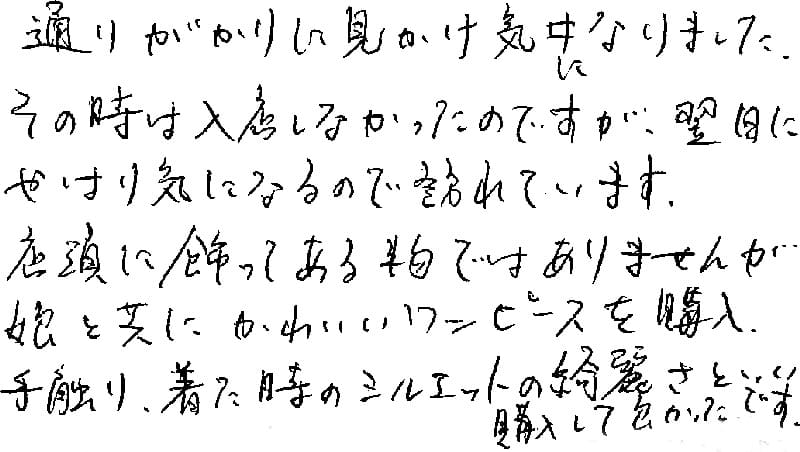 通りがかりに見かけ気になりました。
その時は入店しなかったのですが、翌日に
やはり気になるので訪れています。
店頭に飾ってある物ではありませんが
娘と共にかわいいワンピースを購入。
手触り、着た時のシルエットの綺麗さといい
購入して良かったです。